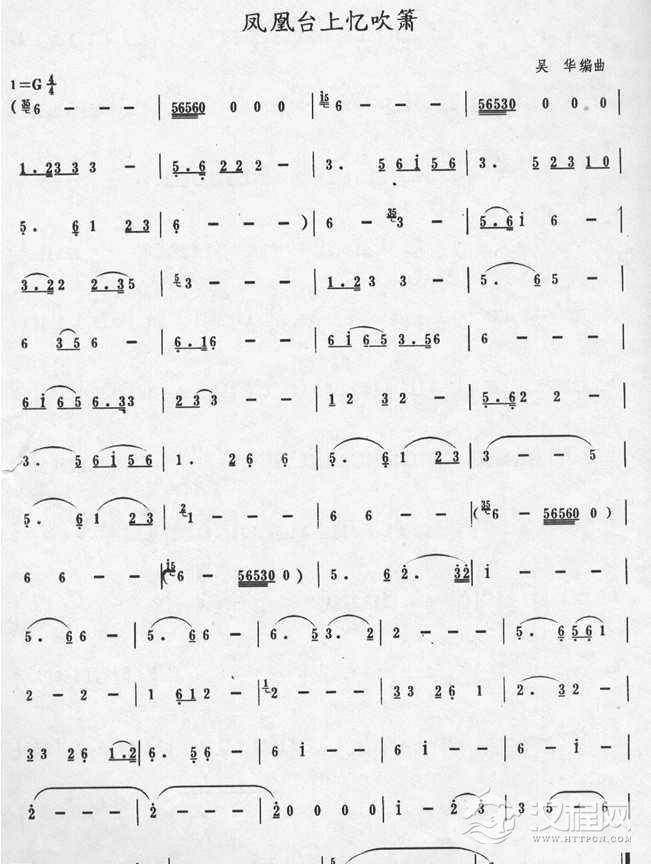 凤凰台上忆吹箫
吴 华 编曲
1=G 4/4
( 35 6 - - - | 56560 0 0 0 | i5 6 - - - | 56530 0 0 0 |
1.233 3 - | 5.6 2 2 2 - | 3. 5 6 i 5 6 | 3. 5 2 3 1 0 |
5. 6 1 2 3 | 6 - - - ) | 6 - 35 3 - | 5.6 i 6 - |
3.22 2.35 | 5 3 - - - | 1.2 3 - | 5. 6 5 - |
6 3 5 6 - | 6.16 - - | 6 i 6 5 3.56 | 6 - - - |
6 i 6 5 6.33 | 2 3 3 - - | 1 2 3 2 - | 5.6 2 2 - |
3. 5 6 i 5 6 | 1. 2 6 6 | 5. 6 1 2 3 | 3 - - 5 |
5. 6 1 2 3 | 2 1 - - - | 6 6 - - | ( 35 6 - 56560 0 ) |
6 6 - - | ( i5 6 - 56530 0 ) | 5. 6 2. 3 2 | i - - - |
5. 6 6 - | 5. 6 6 - | 6. 5 3. 2 | 2 - - - | 5. 6 5 6 1 |
2 - 2 - | 1 6 1 2 - | 1 2 - - - | 3 3 2 6 1 | 2. 3 2 - |
3 3 2 6 1.2 | 6. 5 6 - | 6 i - - | 6 6 - - | 6 - i - |
2 - - - | 2 - - - | 2 0 0 0 0 | 2 - - - | i - 2 3 | 3 - - - |
汉程网
WWW.HTTPCN.COM